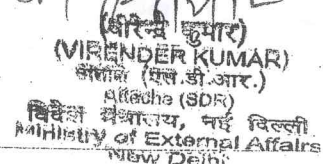 (वीरेन्द्र कुमार)
(VIRENDER KUMAR)
(एस.डी.आर.)
Attache (SDR)
विदेश मंत्रालय, नई दिल्ली
Ministry of External Affairs
New Delhi